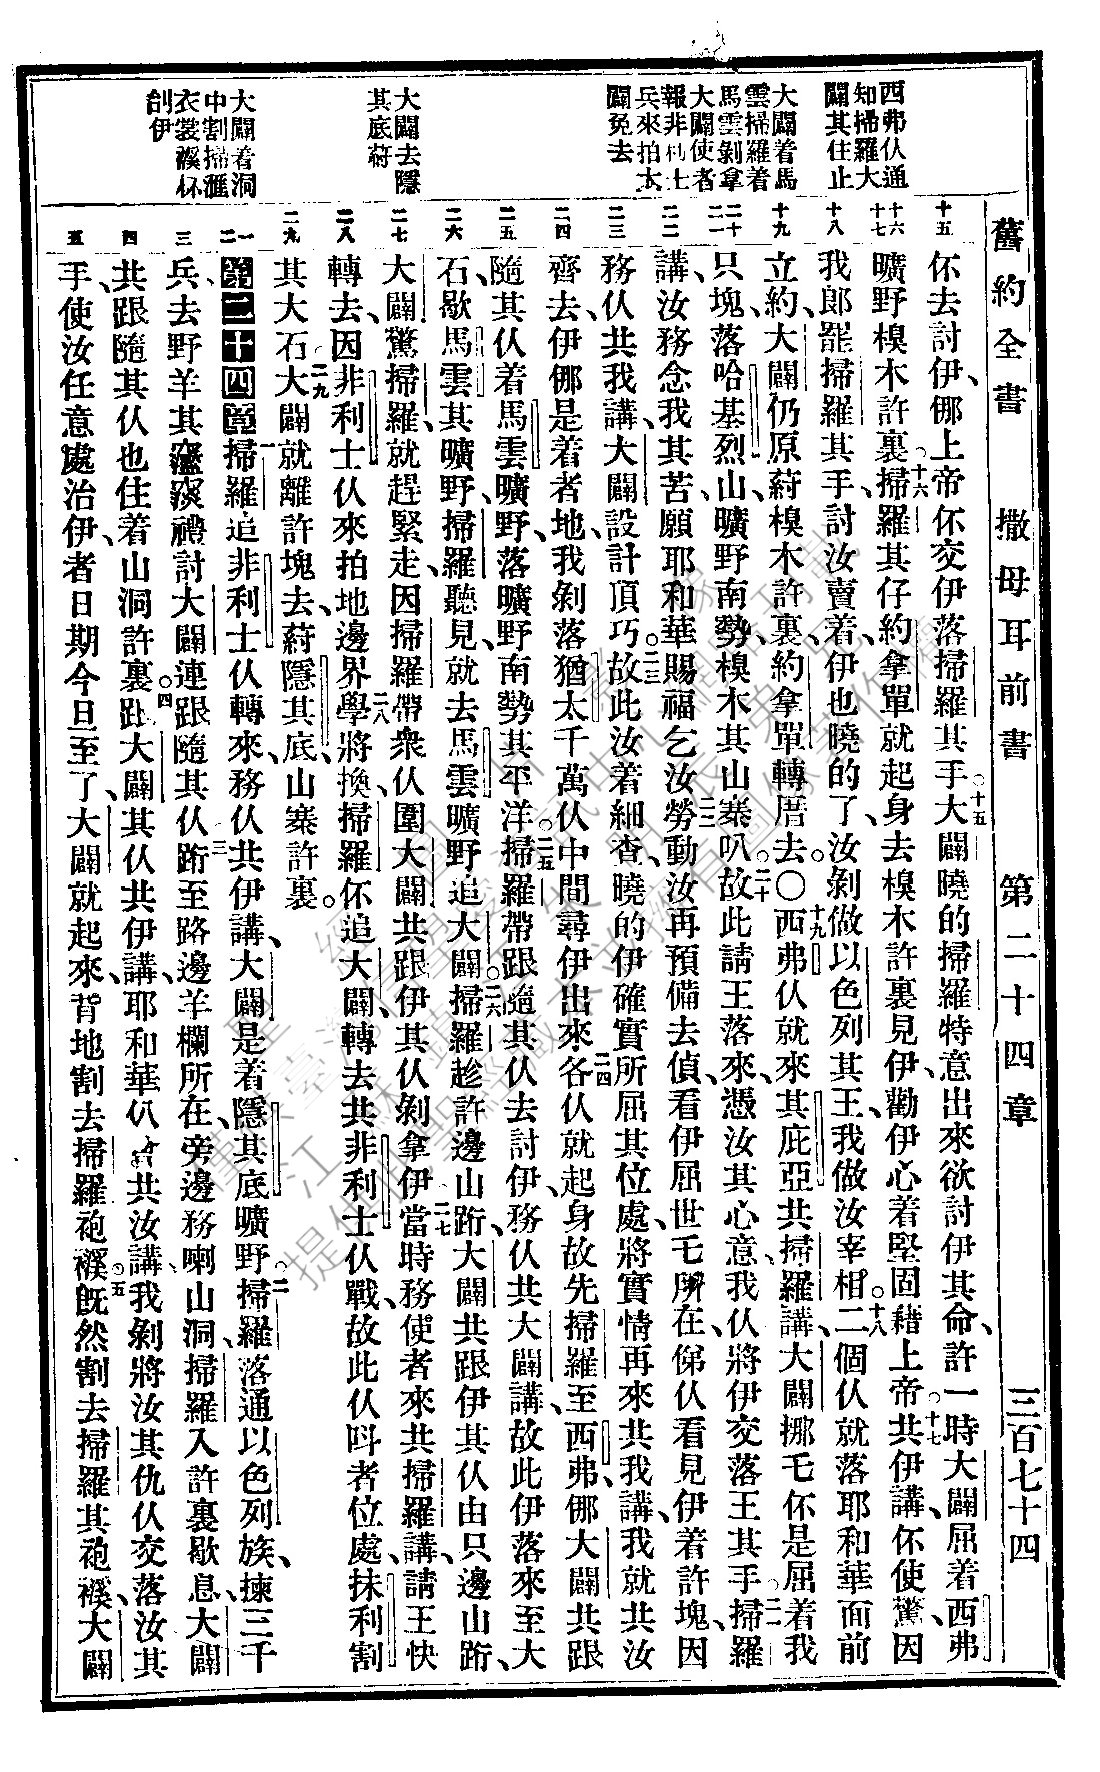 舊約全書　撒母耳前書　第二十四章　三百七十四
西弗仈通
知掃羅大
闢其住止
大闢着馬
雲掃羅着
馬雲剝拿
大闢使者
報非利士
兵來拍大
闢免去
大闢去隱
其底𥴊
大闢着洞
中割掃羅
衣裳襥怀
刣伊
十五
十六
十七
十八
十九
二十
二一
二二
二三
二四
二五
二六
二七
二八
二九
一
二
三
四
五
伓去討伊、㑚上帝伓交伊落掃羅其手、大闢曉的掃羅特意出來欲討伊其命、許一時大闢屈着西弗
曠野模木許裏、掃羅其仔約拿單就起身去模木許裏見伊、勸伊心着堅固藉上帝、共伊講、伓使驚、因
我郎罷掃羅其手、討汝賣着、伊也曉的了、汝剝做以色列其王、我做汝宰相。二個仈就落耶和華面前
立約、大闢仍原𥴊模木許裏、約拿單轉厝去。○西弗仈就來其庇亞共掃羅講、大闢挪乇伓是屈着我
只塊、落哈基烈山、曠野南勢模木其山寨叭、故此請王落來、憑汝其心意、我仈將伊交落王其手、掃羅
講、汝務念我其苦、願耶和華賜福乞汝、勞動汝再預備去偵、看伊屈世乇所在、俤仈看見伊着許塊、因
務仈共我講、大闢設計頂巧。故此汝着細查、曉的伊確實所屈其位處、將實情再來共我講、我就共汝
齊去、伊㑚是着者地、我剝落猶太千萬仈中間尋伊出來、各仈就起身故先掃羅至西弗、㑚大闢共跟
隨其仈着馬雲曠野、落曠野南勢其平洋、掃羅帶跟隨其仈去討伊、務仈共大闢講、故此伊落來至大
石、歇馬雲其曠野、掃羅聽見就去馬雲曠野追大闢。掃羅趁許邊山跲、大闢共跟伊其仈由只邊山跲、
大闢驚掃羅就趕緊走、因掃羅帶衆仈圍大闢共跟伊其仈剝拿伊、當時務使者來共掃羅講、請王快
轉去、因非利士仈來拍地邊界學將換、掃羅伓追大闢、轉去共非利士仈戰、故此仈叫者位處、抹利割
其大石、大闢就離許塊去、𥴊隱其底山寨許裏。
第二十四章　掃羅追非利士仈轉來、務仈共伊講、大闢是着隱其底曠野、掃羅落通以色列族、揀三千
兵去野羊其磹𥔵礸討大闢連跟隨其仈、跲至路邊羊欄所在、旁邊務喇山洞、掃羅入許裏歇息、大闢
共跟隨其仈也住着山洞許裏。大闢其仈共伊講、耶和華仈共汝講、我剝將汝其仇仈交落汝其
手、使汝任意處治伊、者日期今旦至了、大闢就起來、背地割去掃羅袍襥。旣然割去掃羅其袍襥、大闢